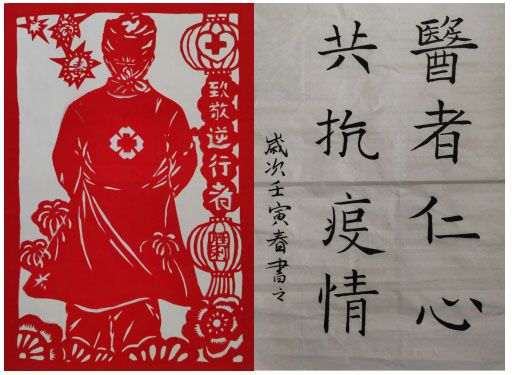 致敬逆行者
醫者仁心
共抗疫情
歲次壬寅春書之